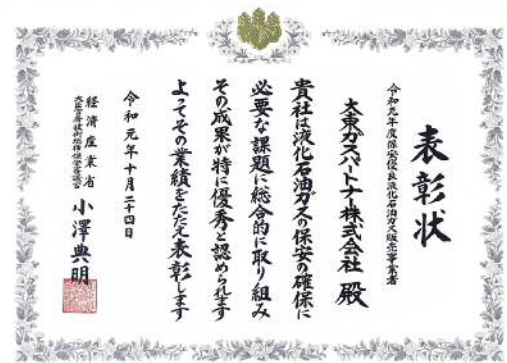 表彰状
令和元年度保安優良液化石油ガス販売事業者
大東ガスパートナー株式会社 殿
貴社は液化石油ガスの保安の確保に
必要な課題に総合的に取り組み
その成果が特に優秀と認められます
よってその業績をたたえ表彰します
令和元年十月二十四日
経済産業省
大臣官房技術総括・保安審議官
小澤典明